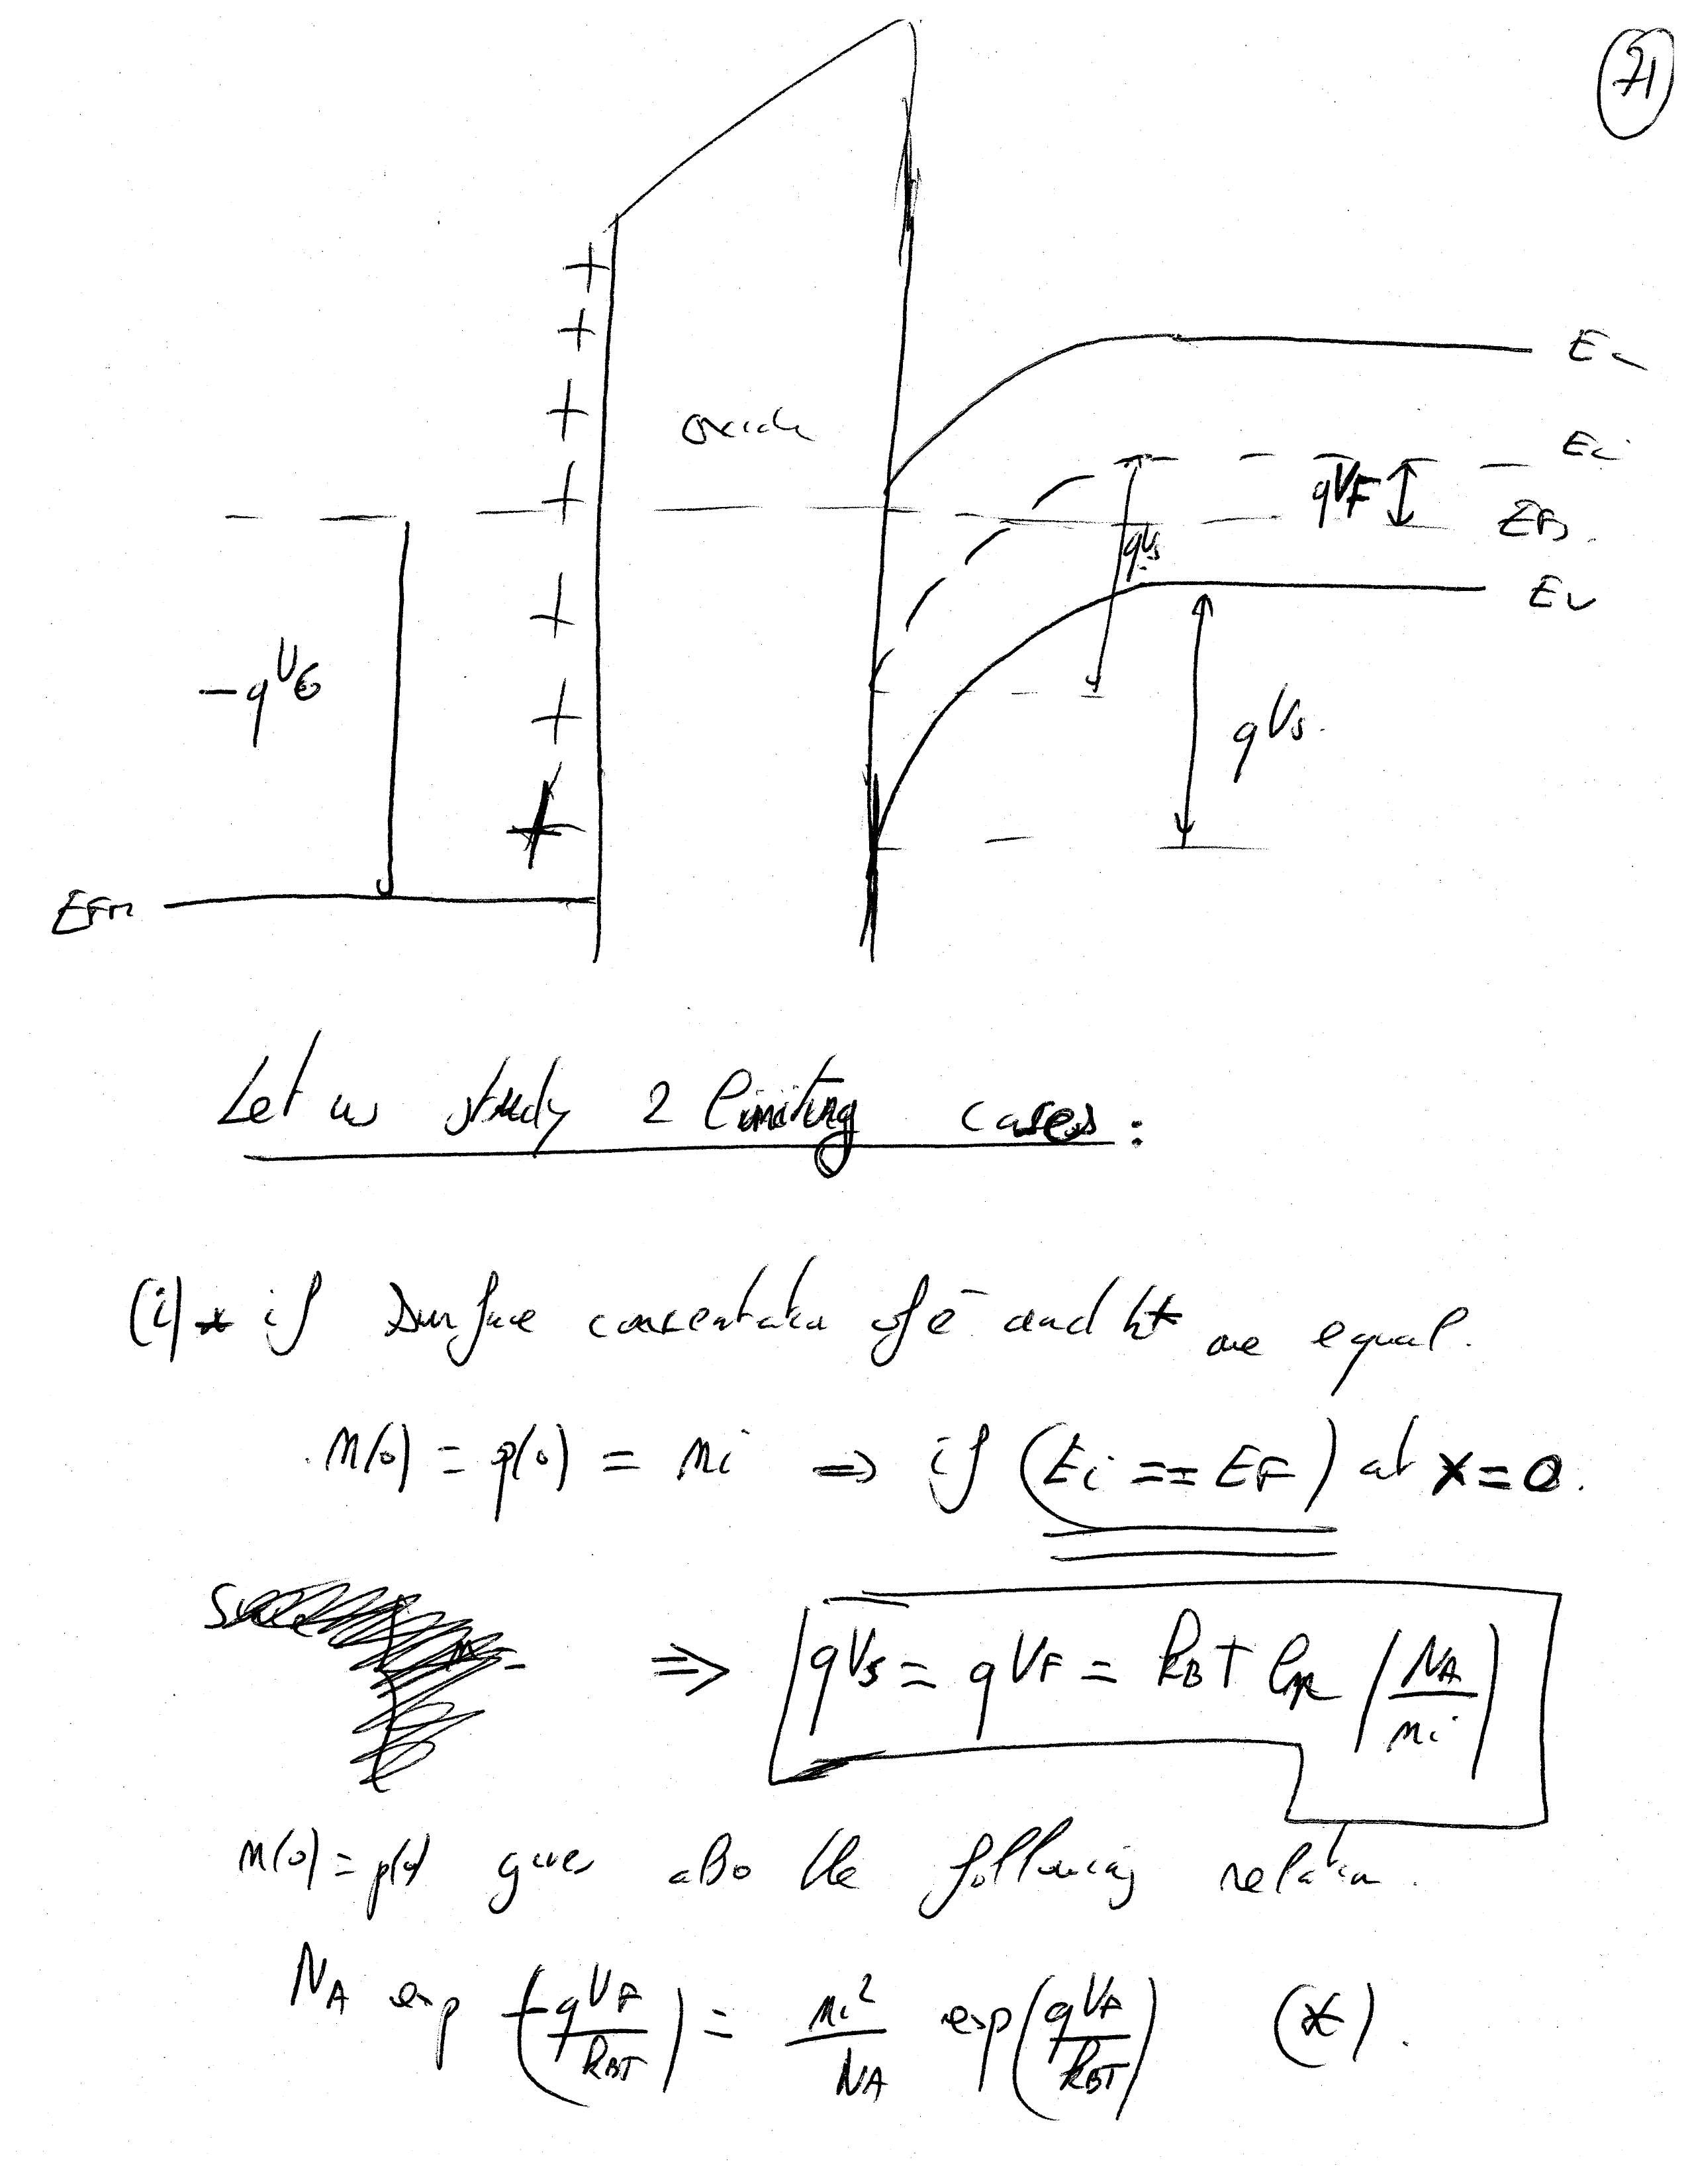 71
oxide
Ec
Ei
qVF
EFs.
qVs
Ev
-qVG
qVs.
EFm
Let us study 2 limiting cases:
(i) * if Surface concentration of e⁻ and h⁺ are equal.
n(0) = p(0) = ni ⇒ if (Ei == EF) at x=0.
⇒ qVs = qVF = kBT ln (NA/ni)
n(0) = p(0) gives also the following relation.
NA exp (-qVF/kBT) = ni²/NA exp(qVF/kBT) (*).